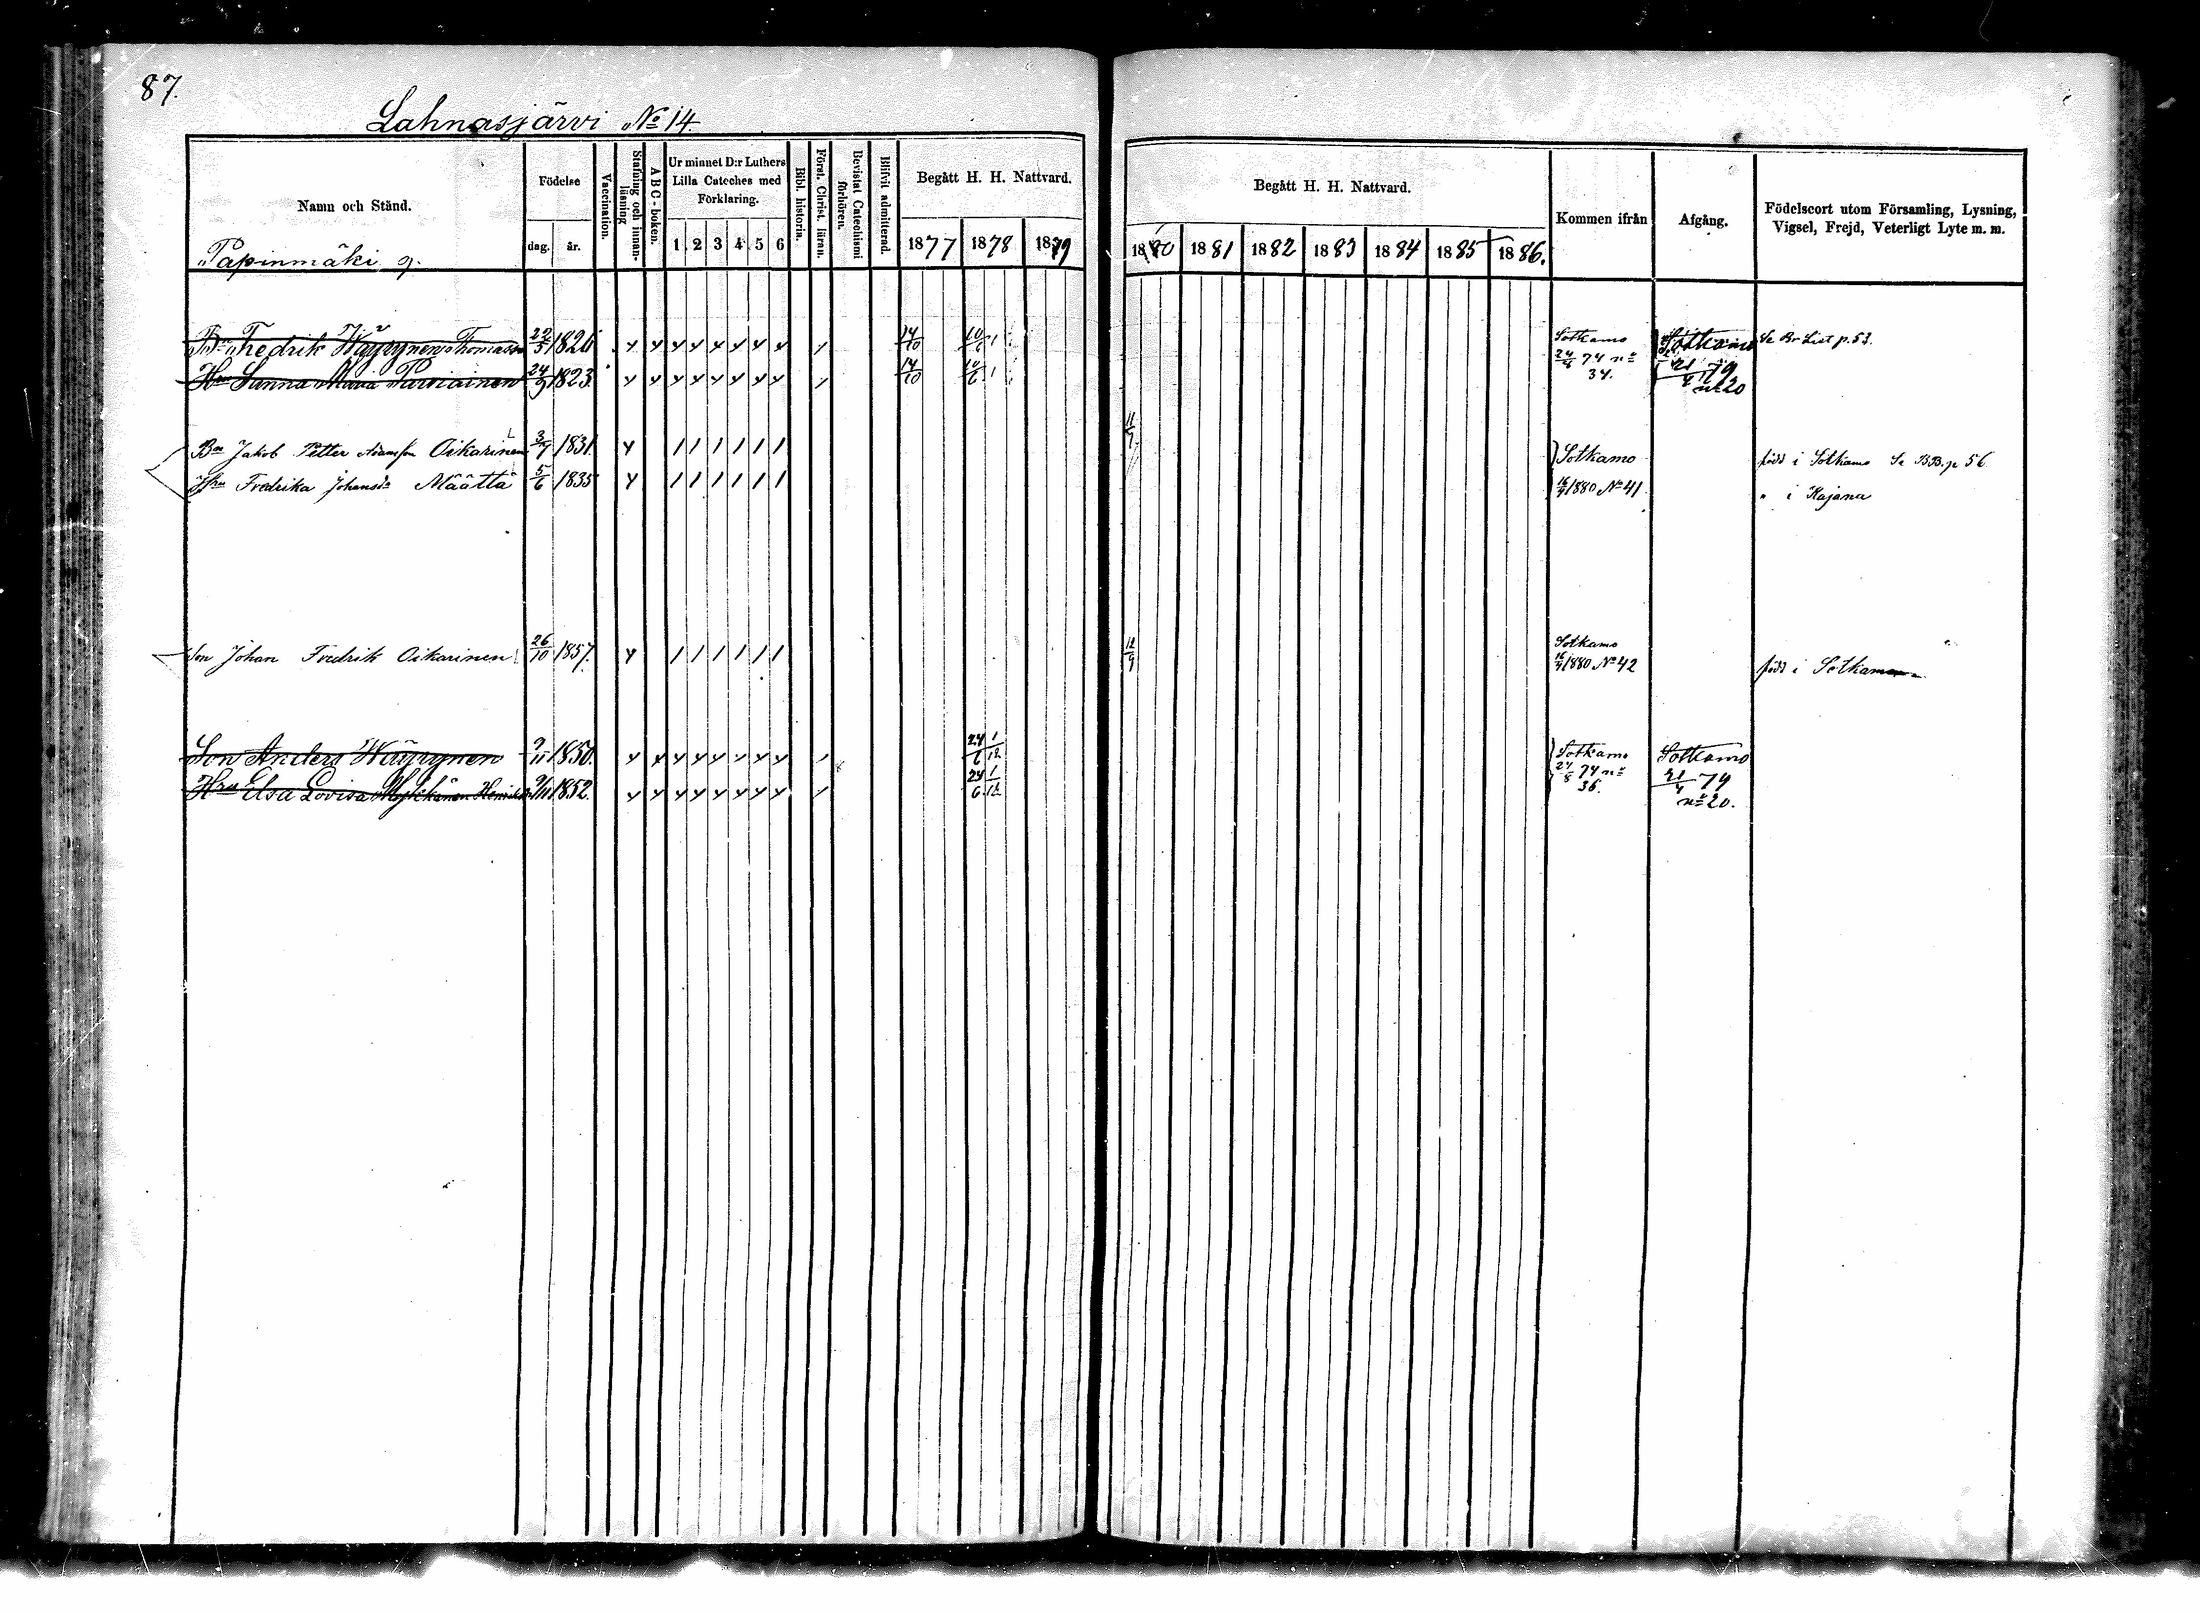 87.
Lahnasjärvi No 14.
Namn och Stånd.
Födelse
dag. år.
Vaccination.
Stafning och innanläsning
ABC-boken.
Ur minnet D:r Luthers Lilla Cateches med Förklaring.
1 2 3 4 5 6
Bibl. historia.
Först. Christ. läran.
Bevistat Catechismi förhören.
Blifvit admitterad.
Begått H. H. Nattvard.
1877 1878 1879
Begått H. H. Nattvard.
1880 1881 1882 1883 1884 1885 1886.
Kommen ifrån
Afgång.
Födelseort utom Församling, Lysning, Vigsel, Frejd, Veterligt Lyte m. m.
Papinmäki
Fredrik Wäyrynen Thomass 22/5 1826 14/10 Sotkamo 24/8 74 no 34. Sotkamo Se Br List p. 53.
Hru Sanna Maria Parviainen 24/9 1823 14/10 21/4 79 no 20
Bn Jakob Petter Adamson Oikarinen 3/7 1831 11/7 Sotkamo född i Sotkamo Se BB. p 56
Hru Fredrika Johansdr Määttä 5/6 1835 1880 No 41 " i Kajana
Son Johan Fredrik Oikarinen 26/10 1857. 12/9 Sotkamo 1880 No 42 född i Sotkamo
Son Anders Wäyrynen 9/11 1850. 24/6 1/12 Sotkamo 24/8 74 no 36. Sotkamo 21/4 79 no 20.
Hru Elsa Lovisa 1852. 24/6 1/12